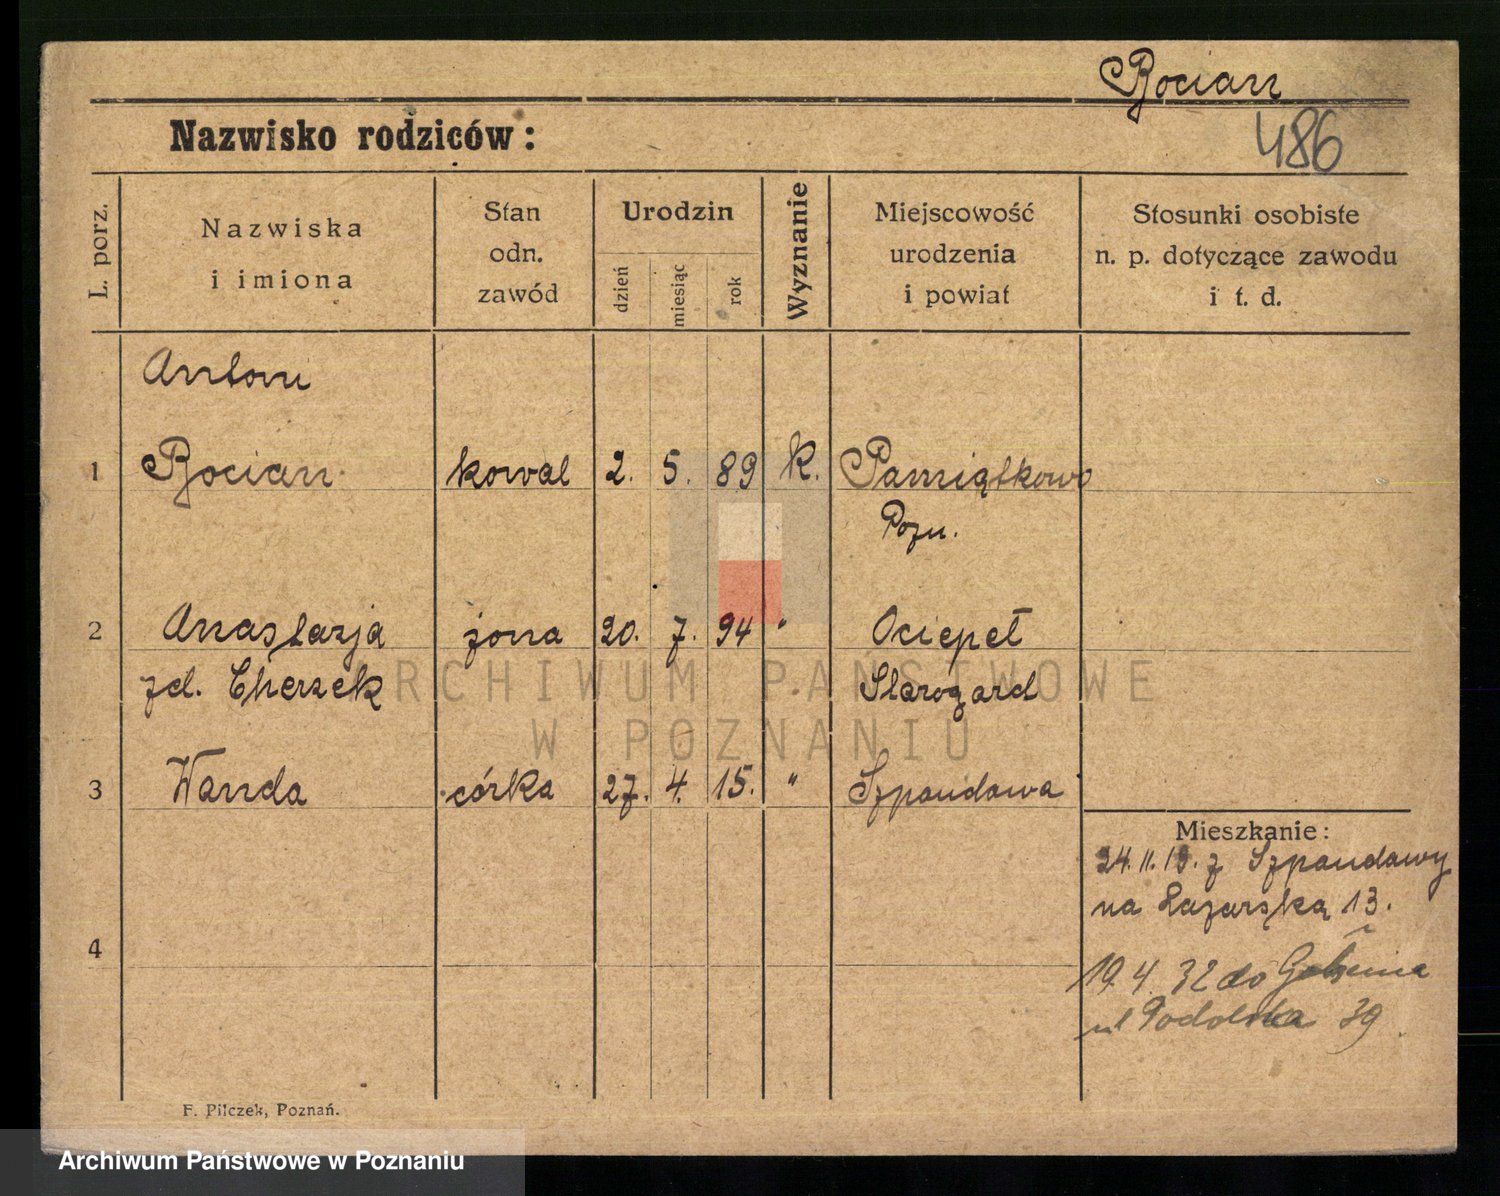 Bocian
Nazwisko rodziców:
486
L. porz.
Nazwiska
i imiona
Stan
odn.
zawód
Urodzin
dzień
miesiąc
rok
Wyznanie
Miejscowość
urodzenia
i powiat
Stosunki osobiste
n. p. dotyczące zawodu
i t. d.
Antoni
1 Bocian kowal 2. 5. 89 k. Pamiątkowo
Pozn.
2 Anastazja żona 20. 7. 94 " Ociepeł
zd. Cherzek Starogard
ARCHIWUM PAŃSTWOWE
W POZNANIU
3 Wanda córka 27. 4. 15. " Szpandawa
Mieszkanie:
24.11.19. z Szpandawy
na Łazarską 13.
4
19.4.32 do
ul Podolska 39
F. Pilczek, Poznań.
Archiwum Państwowe w Poznaniu